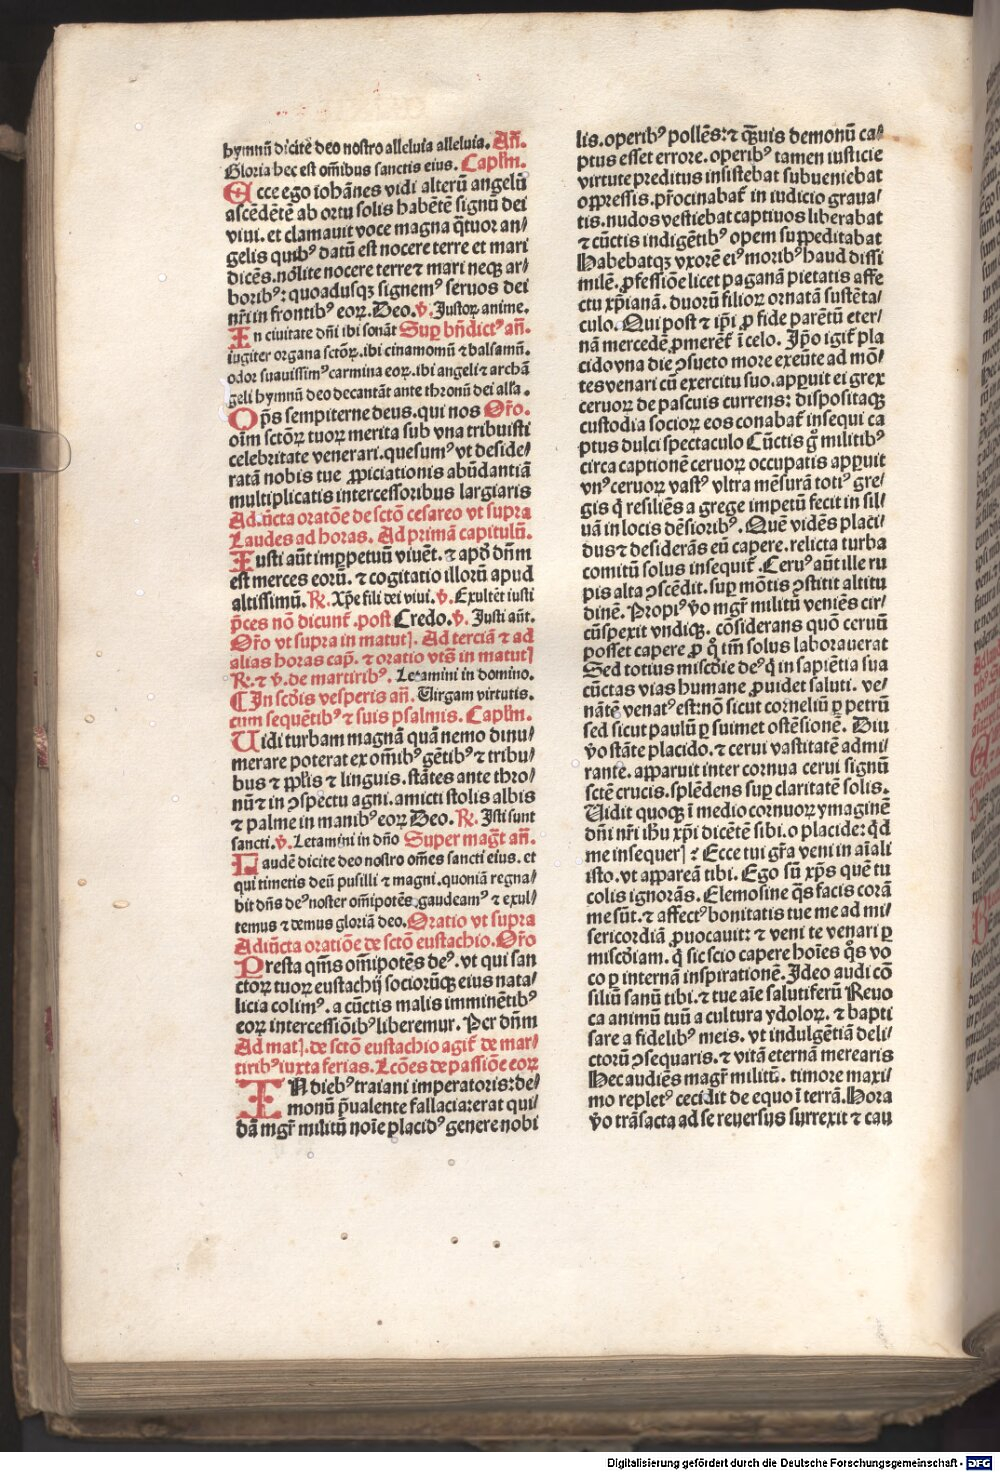 hymnū dicite deo nostro alleluia alleluia. Añ.
Gloria hec est om̄ibus sanctis eius. Caplm̄.
Ecce ego iohānes vidi alterū angelū
ascēdētē ab ortu solis habētē signū dei
viui. et clamauit voce magna q̄tuor an/
gelis quibꝰ datū est nocere terre et mari
dicēs. nolite nocere terre ⁊ mari neqꝫ ar/
boribꝰ: quoadusqꝫ signemꝰ seruos dei
nr̄i in frontibꝰ eoꝝ. Deo. ℣. Iustoꝝ anime.
In ciuitate dn̄i ibi sonāt Suꝑ bn̄dictꝰ añ.
iugiter organa sctōꝝ. ibi cinamomū ⁊ balsamū.
odor suauissimꝰ carmina eoꝝ. ibi angeli ⁊ archā
geli hymnū deo decantāt ante thronū dei alla.
Op̄s sempiterne deus. qui nos Or̄o.
oīm sctōꝝ tuoꝝ merita sub vna tribuisti
celebritate venerari. quesumꝰ vt deside/
ratā nobis tue ꝓpiciationis abūdantiā
multiplicatis intercessoribus largiaris
Ad iūcta oratōe de sctō cesareo vt supra
Laudes ad horas. Ad primā capitulū.
Iusti aūt imꝑpetuū viuēt. ⁊ apd̄ dn̄m
est merces eorū. ⁊ cogitatio illorū apud
altissimū. ℟. Xp̄e fili dei viui. ℣. Exultēt iusti
p̄ces nō dicunt̄. post Credo. ℣. Iusti aūt.
Or̄o vt supra in matutꝭ. Ad terciā ⁊ ad
alias horas cap̄. ⁊ oratio vts̄ in matutꝭ
℟. ⁊ ℣. de martiribꝰ. Letamini in domino.
⸿ In scd̄is vesperis añ. Uirgam virtutis.
cum sequētibꝰ ⁊ suis psalmis. Caplm̄.
Uidi turbam magnā quā nemo dinu/
merare poterat ex om̄ibꝰ gētibꝰ ⁊ tribu/
bus ⁊ pplis ⁊ linguis. stātes ante thro/
nū ⁊ in ꝯspectu agni. amicti stolis albis
⁊ palme in manibꝰ eoꝝ Deo. ℟. Isti sunt
sancti. ℣. Letamini in dn̄o Super magt̄ añ.
Laudē dicite deo nostro om̄es sancti eius. et
qui timetis deū pusilli ⁊ magni. quoniā regna/
bit dn̄s deꝰ noster om̄ipotēs. gaudeamꝰ ⁊ exul/
temus ⁊ demus gloriā deo. Oratio vt supra
Adiūcta oratiōe de sctō eustachio. Or̄o
Presta qm̄s om̄ipotēs deꝰ. vt qui san
ctoꝝ tuoꝝ eustachij sociorūqꝫ eius nata/
licia colimꝰ. a cūctis malis imminētibꝰ
eoꝝ intercessiōibꝰ liberemur. Per dn̄m
Ad matꝭ. de sctō eustachio agit̄ de mar/
tiribꝰ iuxta ferias. Lcōes de passiōe eoꝝ
IN diebꝰ traiani imperatoris: de/
monū p̄ualente fallacia: erat qui/
dā mgr̄ militū noīe placidꝰ genere nobi
lis. operibꝰ pollēs: ⁊ q̄uis demonū ca/
ptus esset errore. operibꝰ tamen iusticie
virtute preditus insistebat subueniebat
oppressis. pr̄ocinabat̄ in iudicio graua/
tis. nudos vestiebat captiuos liberabat
⁊ cūctis indigētibꝰ opem suppeditabat
Habebatqꝫ vxorē eiꝰ moribꝰ haud dissi
milē. ꝓfessiōe licet paganā pietatis affe
ctu xp̄ianā. duorū filioꝝ ornatā sustēta/
culo. Qui post ⁊ ip̄i ꝓ fide parētū eter/
nā mercedē ꝓmerēt̄ ī celo. Ip̄o igit̄ pla
cido vna die ꝯsueto more exeūte ad mō/
tes venari cū exercitu suo. apꝑuit ei grex
ceruoꝝ de pascuis currens: dispositaqꝫ
custodia socioꝝ eos conabat̄ insequi ca
ptus dulci spectaculo Cūctis gͦ militibꝰ
circa captionē ceruoꝝ occupatis apꝑuit
vnꝰ ceruoꝝ vastꝰ vltra mēsurā totiꝰ gre/
gis q̄ resiliēs a grege impetū fecit in sil/
uā in locis dēsioribꝰ. Quē vidēs placi/
dus ⁊ desiderās eū capere. relicta turba
comitū solus insequit̄. Ceruꝰ aūt ille ru
pis alta ꝯscēdit. suꝑ mōtis ꝯstitit altitu
dinē. Propiꝰ v̄o mgr̄ militū veniēs cir/
cūspexit vndiqꝫ. cōsiderans quō ceruū
posset capere ꝓ qͦ tm̄ solus laborauerat
Sed totius miscd̄ie deꝰ q̄ in sapiētia sua
cūctas vias humane ꝓuidet saluti. ve/
nātē venatꝰ est: nō sicut corneliū ꝑ petrū
sed sicut paulū ꝑ suimet ostēsionē. Diu
v̄o stāte placido. ⁊ cerui vastitatē admi/
rante. apparuit inter cornua cerui signū
sctē crucis. splēdens suꝑ claritatē solis.
Uidit quoqꝫ ī medio cornuoꝝ ymaginē
dn̄i nr̄i ihu xp̄i dicētē sibi. o placide: qd̄
me insequerꝭ ⁊ Ecce tui gr̄a veni in aīali
isto. vt appareā tibi. Ego sū xp̄s quē tu
colis ignorās. Elemosine q̄s facis corā
me sūt. ⁊ affectꝰ bonitatis tue me ad mi/
sericordiā ꝓuocauit: ⁊ veni te venari ꝑ
miscd̄iam. q̄ sic scio capere hoīes qͦs vo
co ꝑ internā inspirationē. Ideo audi cō
siliū sanū tibi. ⁊ tue aīe salutiferū Reuo
ca animū tuū a cultura ydoloꝝ. ⁊ bapti
sare a fidelibꝰ meis. vt indulgētiā deli/
ctorū ꝯsequaris. ⁊ vitā eternā merearis
Hec audiēs magr̄ militū. timore maxi/
mo repletꝰ cecidit de equo ī terrā. Hora
v̄o trāsacta ad se reuersus surrexit ⁊ cau
Digitalisierung gefördert durch die Deutsche Forschungsgemeinschaft - DFG